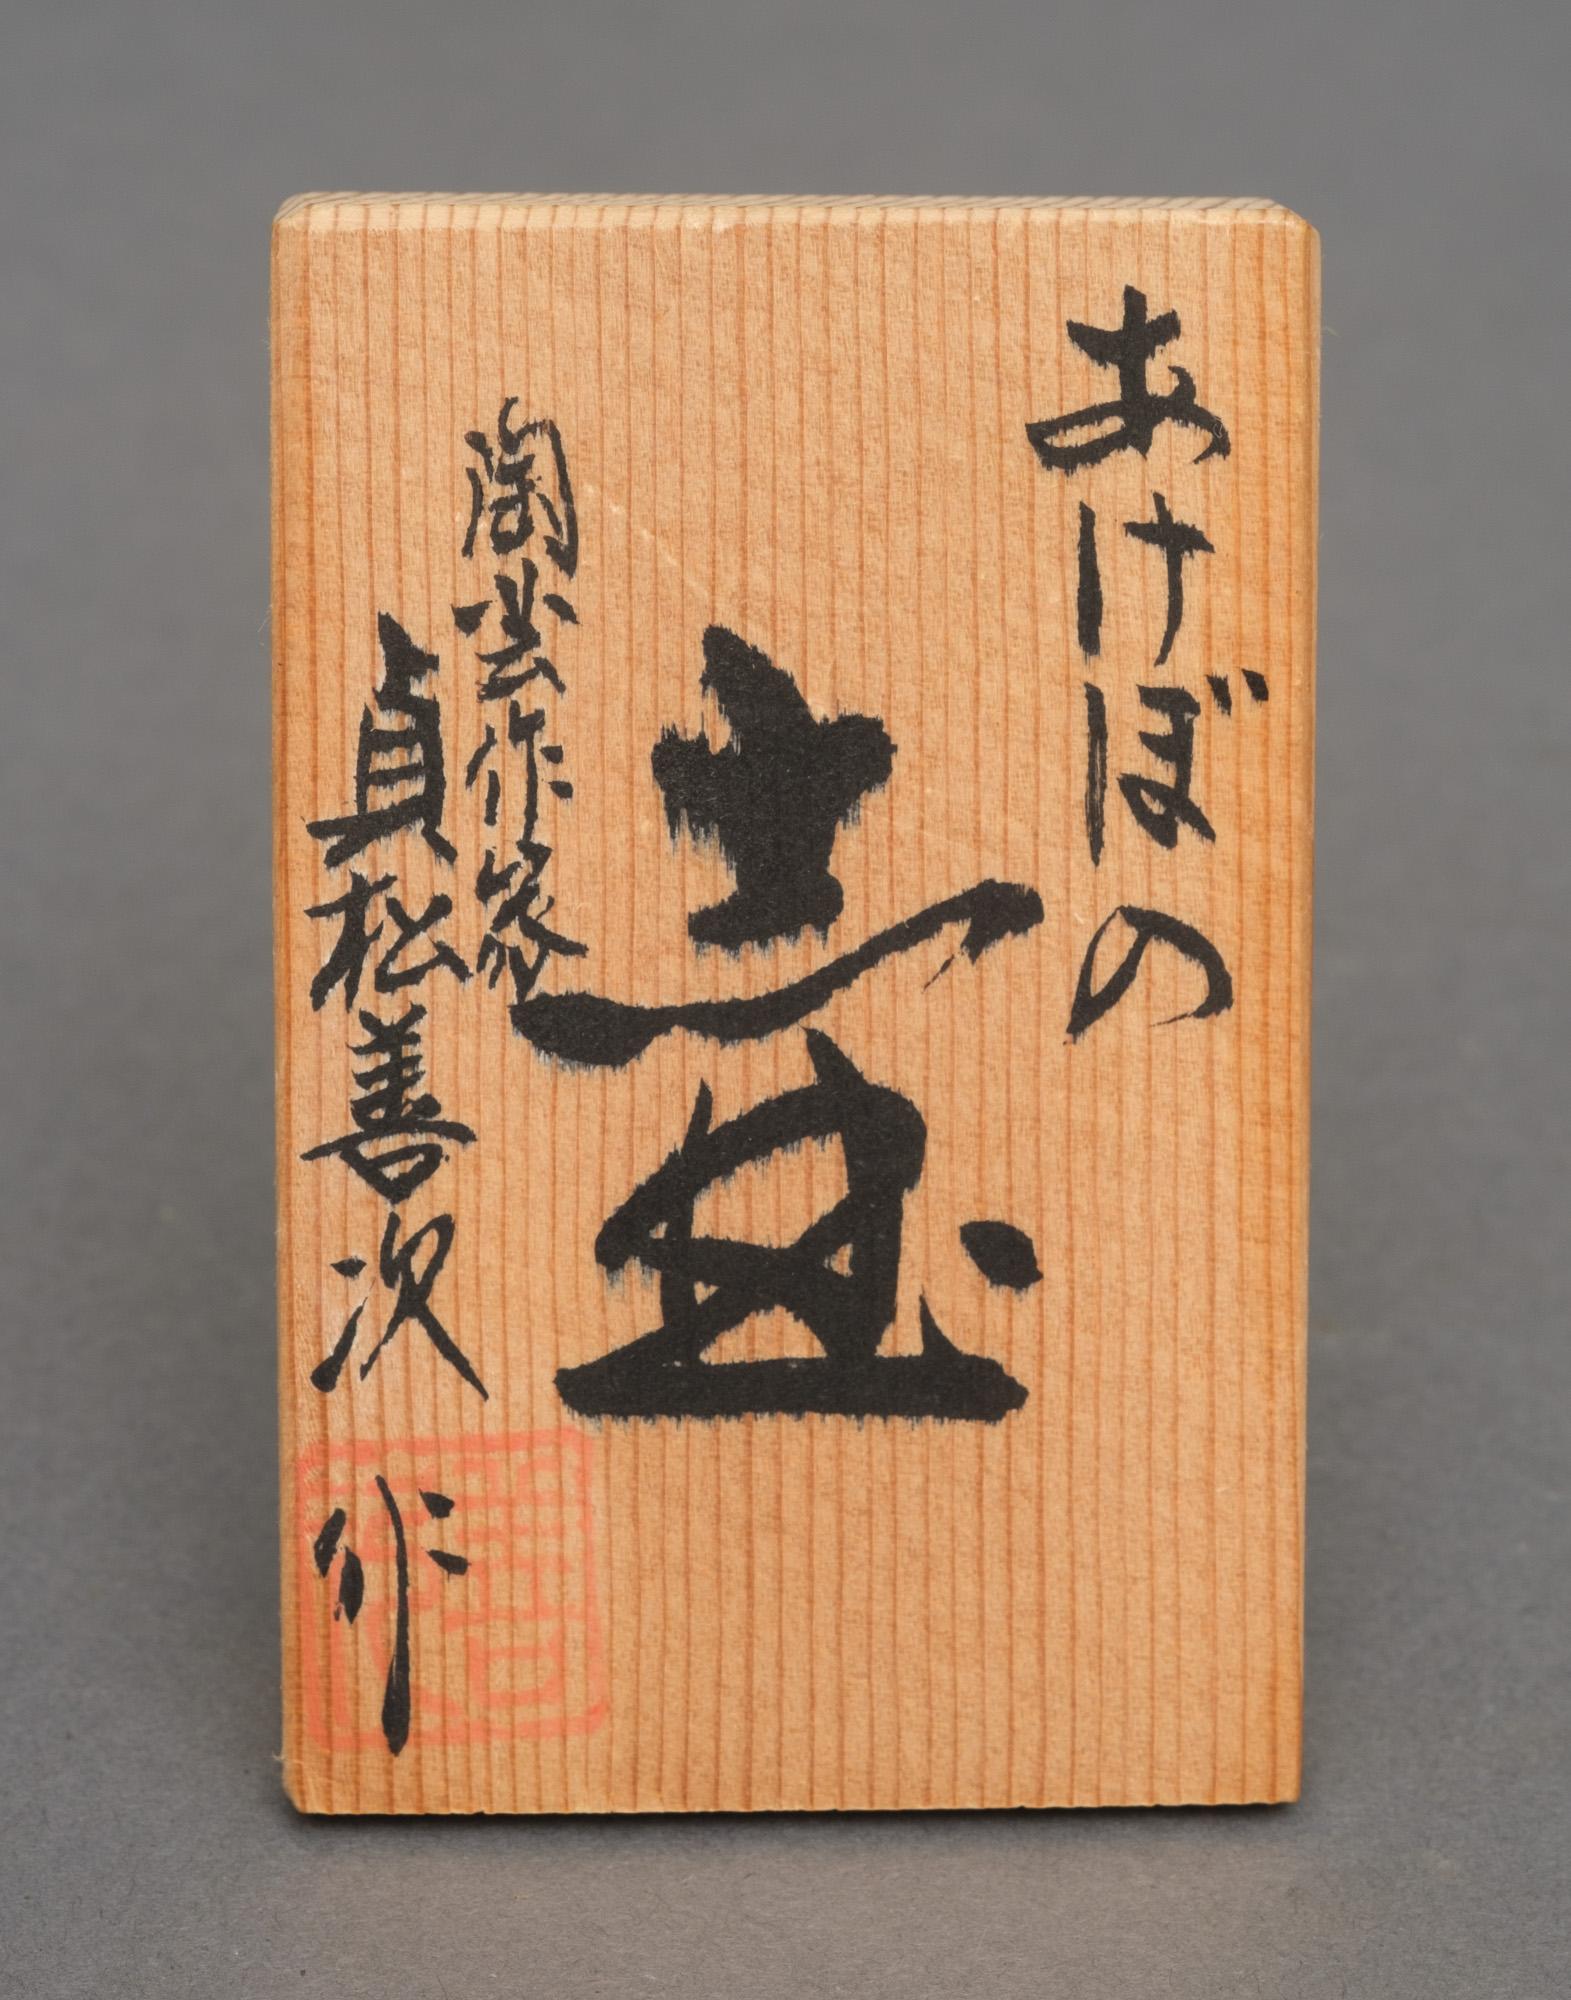 あけぼの
壺
陶芸作家
貞松善次
作